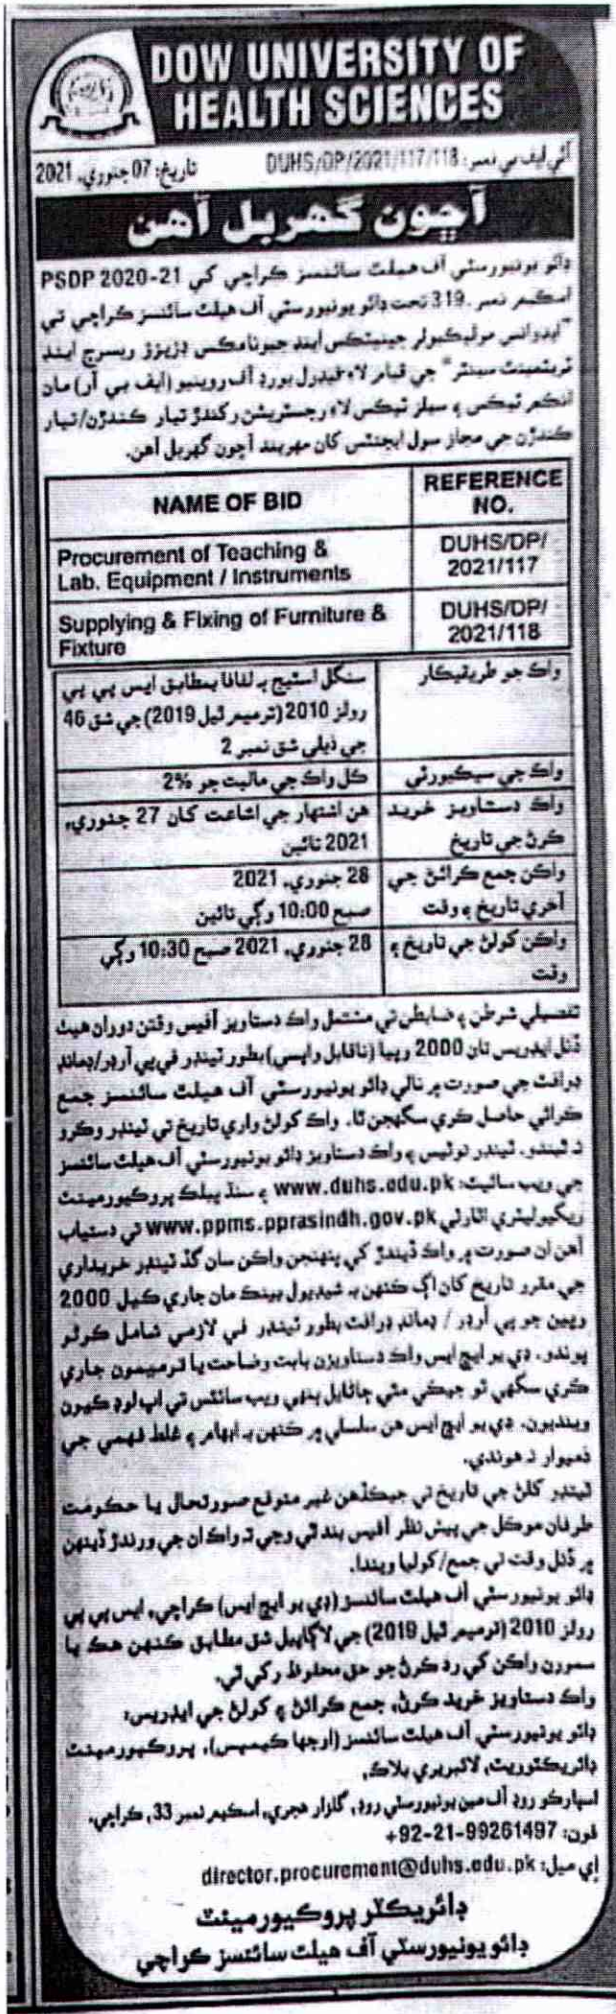 DOW UNIVERSITY OF
HEALTH SCIENCES
آئي ايف بي نمبر: DUHS/DP/2021/117/118 تاريخ: 07 جنوري، 2021
آڇون گهربل آهن
ڊائو يونيورسٽي آف هيلٿ سائنسز ڪراچي کي PSDP 2020-21
اسڪيم نمبر .319 تحت ڊائو يونيورسٽي آف هيلٿ سائنسز ڪراچي تي
"ايڊوانس موليڪيولر جينيٽڪس اينڊ جينوامڪس ڊزيزز ريسرچ اينڊ
ٽريٽمينٽ سينٽر" جي قيام لاءِ فيڊرل بورڊ آف روينيو (ايف بي آر) مان
انڪم ٽيڪس ۽ سيلز ٽيڪس لاءِ رجسٽريشن رکندڙ تيار ڪندڙن/تيار
ڪندڙن جي مجاز سول ايجنٽس کان مهربند آڇون گهربل آهن.
NAME OF BID REFERENCE NO.
Procurement of Teaching & Lab. Equipment / Instruments DUHS/DP/ 2021/117
Supplying & Fixing of Furniture & Fixture DUHS/DP/ 2021/118
واڪ جو طريقيڪار سنگل اسٽيج ٻه لفافا بمطابق ايس پي پي
رولز 2010 (ترميم ٿيل 2019) جي شق 46
جي ذيلي شق نمبر 2
واڪ جي سيڪيورٽي ڪل واڪ جي ماليت جو %2
واڪ دستاويز خريد هن اشتهار جي اشاعت کان 27 جنوري،
ڪرڻ جي تاريخ 2021 تائين
واڪن جمع ڪرائڻ جي 28 جنوري، 2021
آخري تاريخ ۽ وقت صبح 10:00 وڳي تائين
واڪن کولڻ جي تاريخ ۽ 28 جنوري، 2021 صبح 10:30 وڳي
وقت
تفصيلي شرطن ۽ ضابطن تي مشتمل واڪ دستاويز آفيس وقتن دوران هيٺ
ڏنل ايڊريس تان 2000 رپيا (ناقابل واپسي) بطور ٽينڊر في پي آرڊر/ڊمانڊ
ڊرافٽ جي صورت ۾ نالي ڊائو يونيورسٽي آف هيلٿ سائنسز جمع
ڪرائي حاصل ڪري سگهجن ٿا. واڪ کولڻ واري تاريخ تي ٽينڊر وڪرو
نه ٿيندو. ٽينڊر نوٽيس ۽ واڪ دستاويز ڊائو يونيورسٽي آف هيلٿ سائنسز
جي ويب سائيٽ: www.duhs.edu.pk ۽ سنڌ پبلڪ پروڪيورمينٽ
ريگيوليٽري اٿارٽي www.ppms.pprasindh.gov.pk تي دستياب
آهن ان صورت ۾ واڪ ڏيندڙ کي پنهنجن واڪن سان گڏ ٽينڊر خريداري
جي مقرر تاريخ کان اڳ ڪنهن به شيڊيول بينڪ مان جاري ڪيل 2000
رپين جو پي آرڊر / ڊمانڊ ڊرافٽ بطور ٽينڊر في لازمي شامل ڪرڻو
پوندو. ڊي يو ايڇ ايس واڪ دستاويزن بابت وضاحت يا ترميمون جاري
ڪري سگهي ٿو جيڪي مٿي ڄاڻايل ٻنهي ويب سائٽس تي اپ لوڊ ڪيون
وينديون. ڊي يو ايڇ ايس هن سلسلي ۾ ڪنهن به ابهام ۽ غلط فهمي جي
ذميوار نه هوندي.
ٽينڊر کلڻ جي تاريخ تي جيڪڏهن غير متوقع صورتحال يا حڪومت
طرفان موڪل جي پيش نظر آفيس بند ٿي وڃي ته واڪ ان جي ورندڙ ڏينهن
۾ ڏنل وقت تي جمع/کوليا ويندا.
ڊائو يونيورسٽي آف هيلٿ سائنسز (ڊي يو ايڇ ايس) ڪراچي، ايس پي پي
رولز 2010 (ترميم ٿيل 2019) جي لاڳاپيل شق مطابق ڪنهن هڪ يا
سمورن واڪن کي رد ڪرڻ جو حق محفوظ رکي ٿي.
واڪ دستاويز خريد ڪرڻ، جمع ڪرائڻ ۽ کولڻ جي ايڊريس:
ڊائو يونيورسٽي آف هيلٿ سائنسز (اوجها ڪيمپس)، پروڪيورمينٽ
ڊائريڪٽوريٽ، لائبريري بلاڪ،
اسپارڪو روڊ آف مين يونيورسٽي روڊ، گلزار هجري، اسڪيم نمبر 33، ڪراچي.
فون: 99261497-21-92+
اي ميل: director.procurement@duhs.edu.pk
ڊائريڪٽر پروڪيورمينٽ
ڊائو يونيورسٽي آف هيلٿ سائنسز ڪراچي